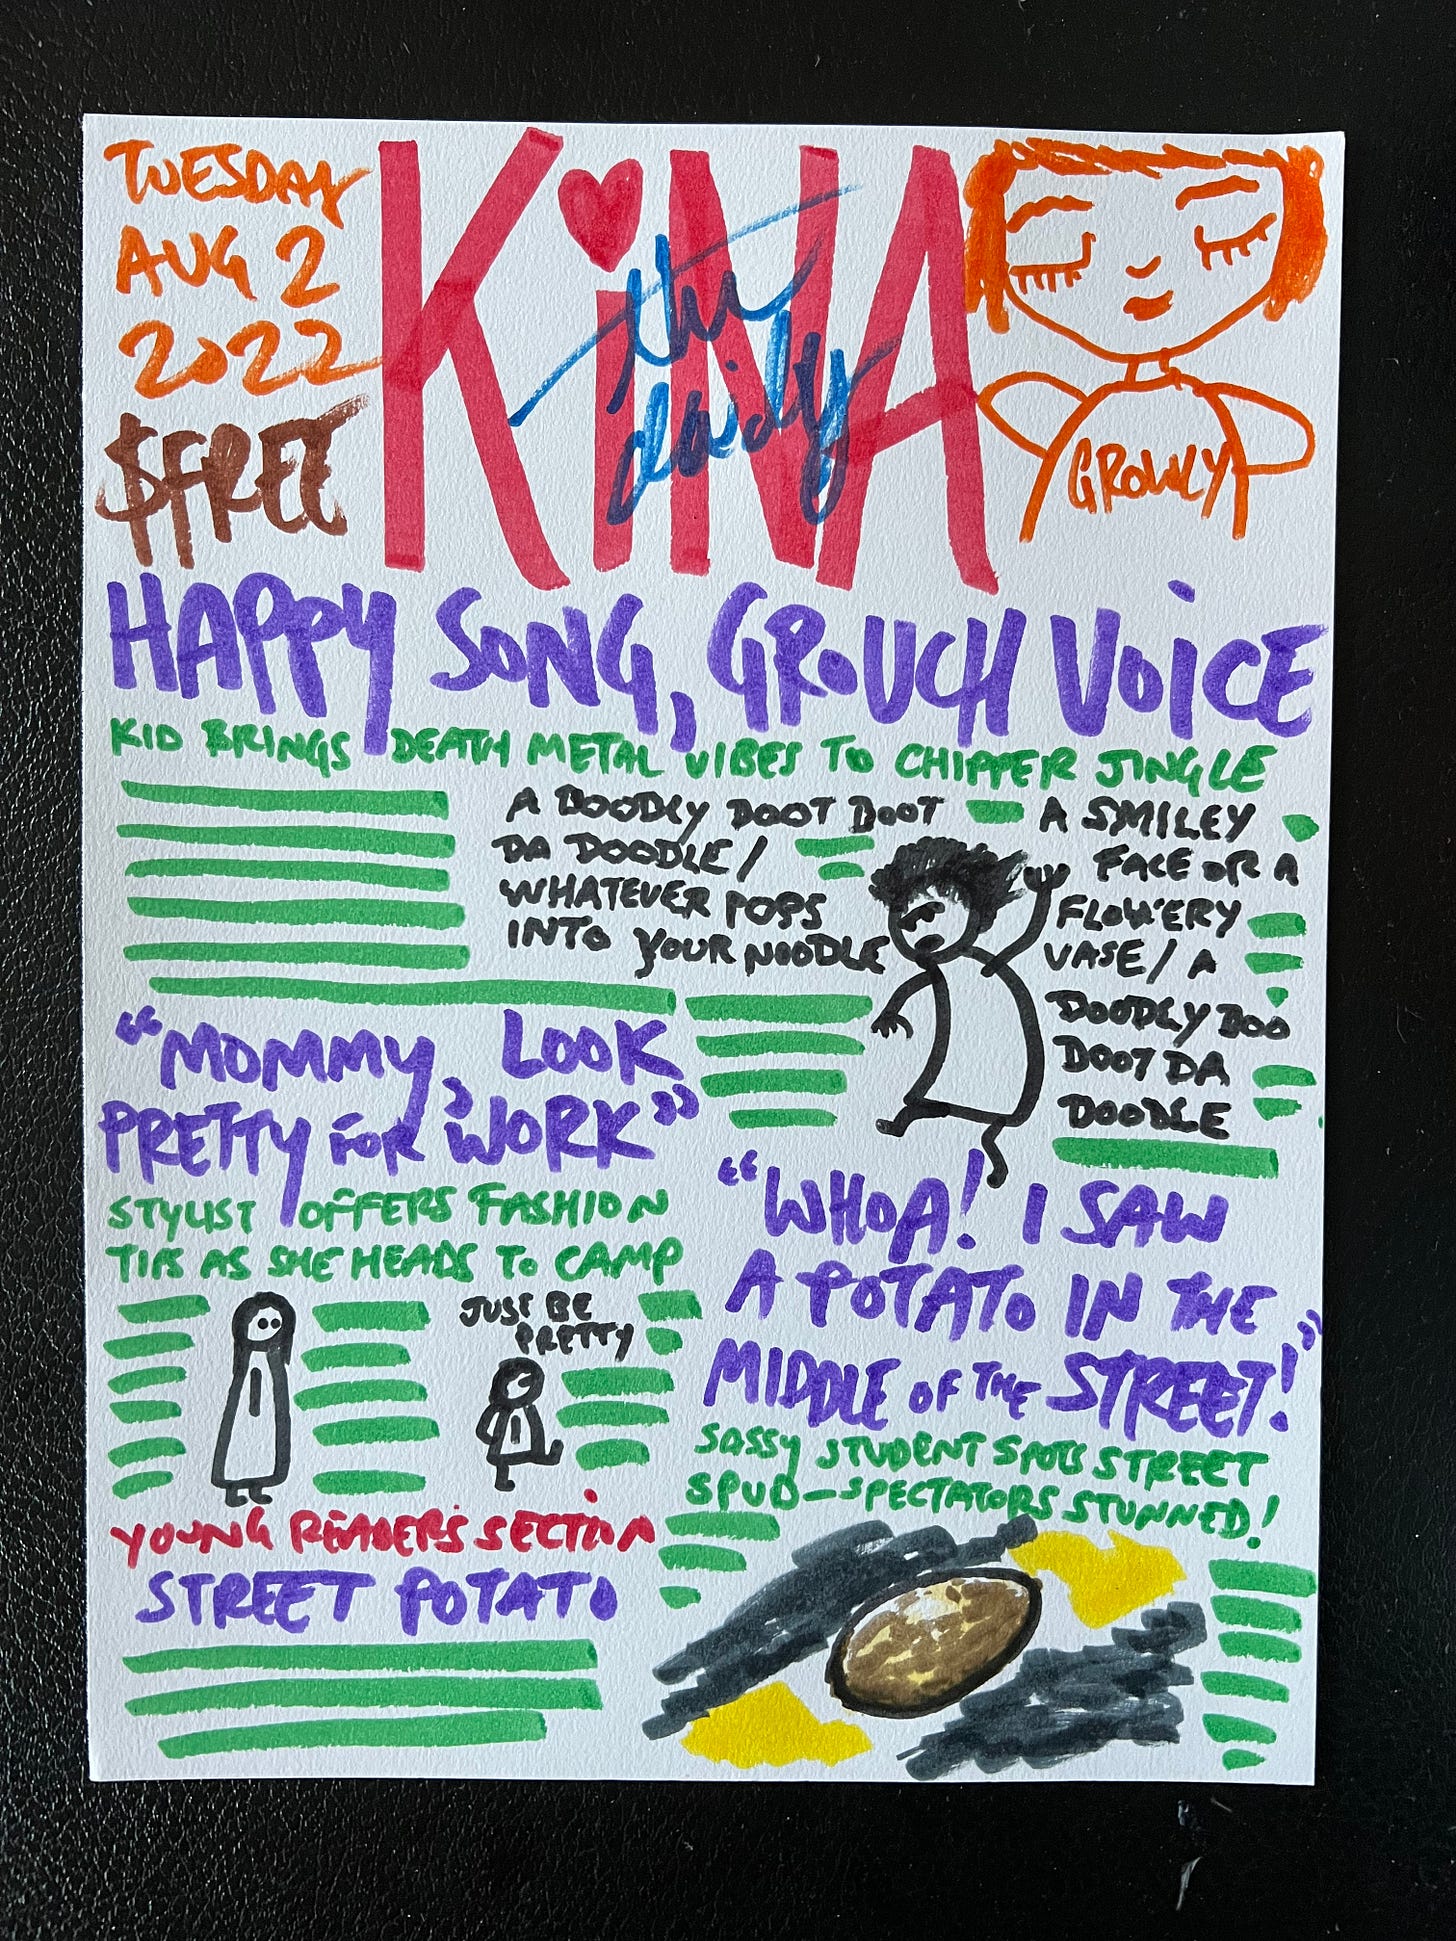 TUESDAY
AUG 2
2022
$FREE
KiNA
the
daily
GROWLY
HAPPY SONG, GROUCH VOICE
KID BRINGS DEATH METAL VIBES TO CHIPPER JINGLE
A DOODLY DOOT DOOT
DA DOODLE /
WHATEVER POPS
INTO YOUR NOODLE
A SMILEY
FACE OR A
FLOWERY
VASE / A
DOODLY DOO
DOOT DA
DOODLE
"MOMMY, LOOK
PRETTY FOR WORK"
STYLIST OFFERS FASHION
TIPS AS SHE HEADS TO CAMP
JUST BE
PRETTY
"WHOA! I SAW
A POTATO IN THE
MIDDLE OF THE STREET!"
SASSY STUDENT SPOTS STREET
SPUD—SPECTATORS STUNNED!
YOUNG READERS SECTION
STREET POTATO